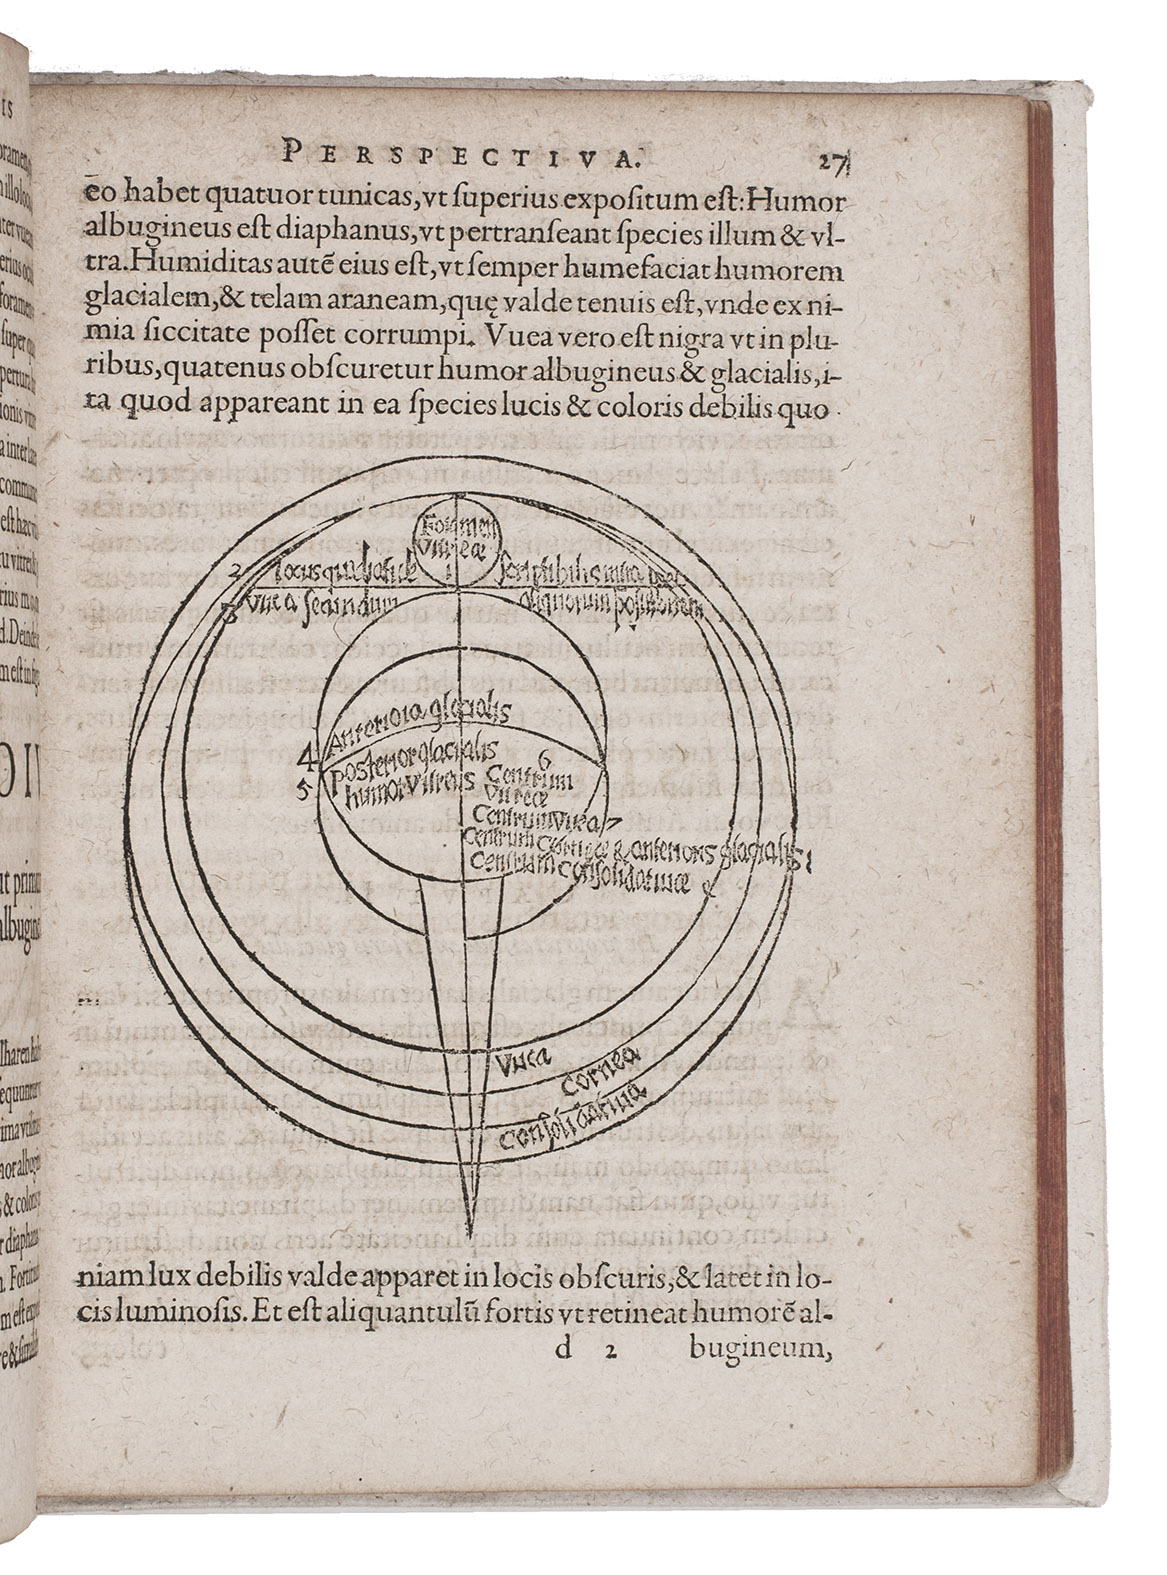 PERSPECTIVA. 27
eo habet quatuor tunicas, vt ſuperius expoſitum eſt: Humor
albugineus eſt diaphanus, vt pertranſeant ſpecies illum & vl-
tra. Humiditas autē eius eſt, vt ſemper humefaciat humorem
glacialem, & telam araneam, quę valde tenuis eſt, vnde ex ni-
mia ſiccitate poſſet corrumpi. Vuea vero eſt nigra vt in plu-
ribus, quatenus obſcuretur humor albugineus & glacialis, i-
ta quod appareant in ea ſpecies lucis & coloris debilis quo
Foramen
1
2
3 Vuea ſecundum
aliquorum poſitionem
4 Anteriora glacialis
5 poſterior glacialis
humor vitreus
6
Centrum
Centrum Vuea 7
Centrum & anterioris glacialis
Centrum Conſolidatiuæ
Vuea
Cornea
Conſolidatiua
niam lux debilis valde apparet in locis obſcuris, & latet in lo-
cis luminoſis. Et eſt aliquantulū fortis vt retineat humorē al-
d 2 bugineum,